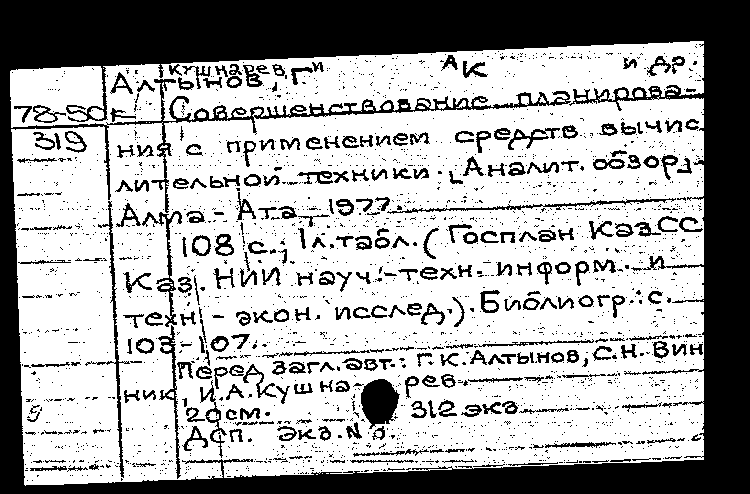 Кушнарев, и АК и др.
Алтынов, Г
78-50 Совершенствование планирова-
319 ния с применением средств вычис
лительной техники. [Аналит. обзор].-
Алма-Ата, 1977.
108 с.; 1л.табл. (Госплан КазСС
Каз. НИИ науч.-техн. информ. и
техн-экон. исслед.). Библиогр.: с.
103-107.
Перед загл. авт.: Г.К. Алтынов, С.Н. Вин
ник, И.А. Кушнарев.
20см. 312 экз.
9
Дсп. Экз. N